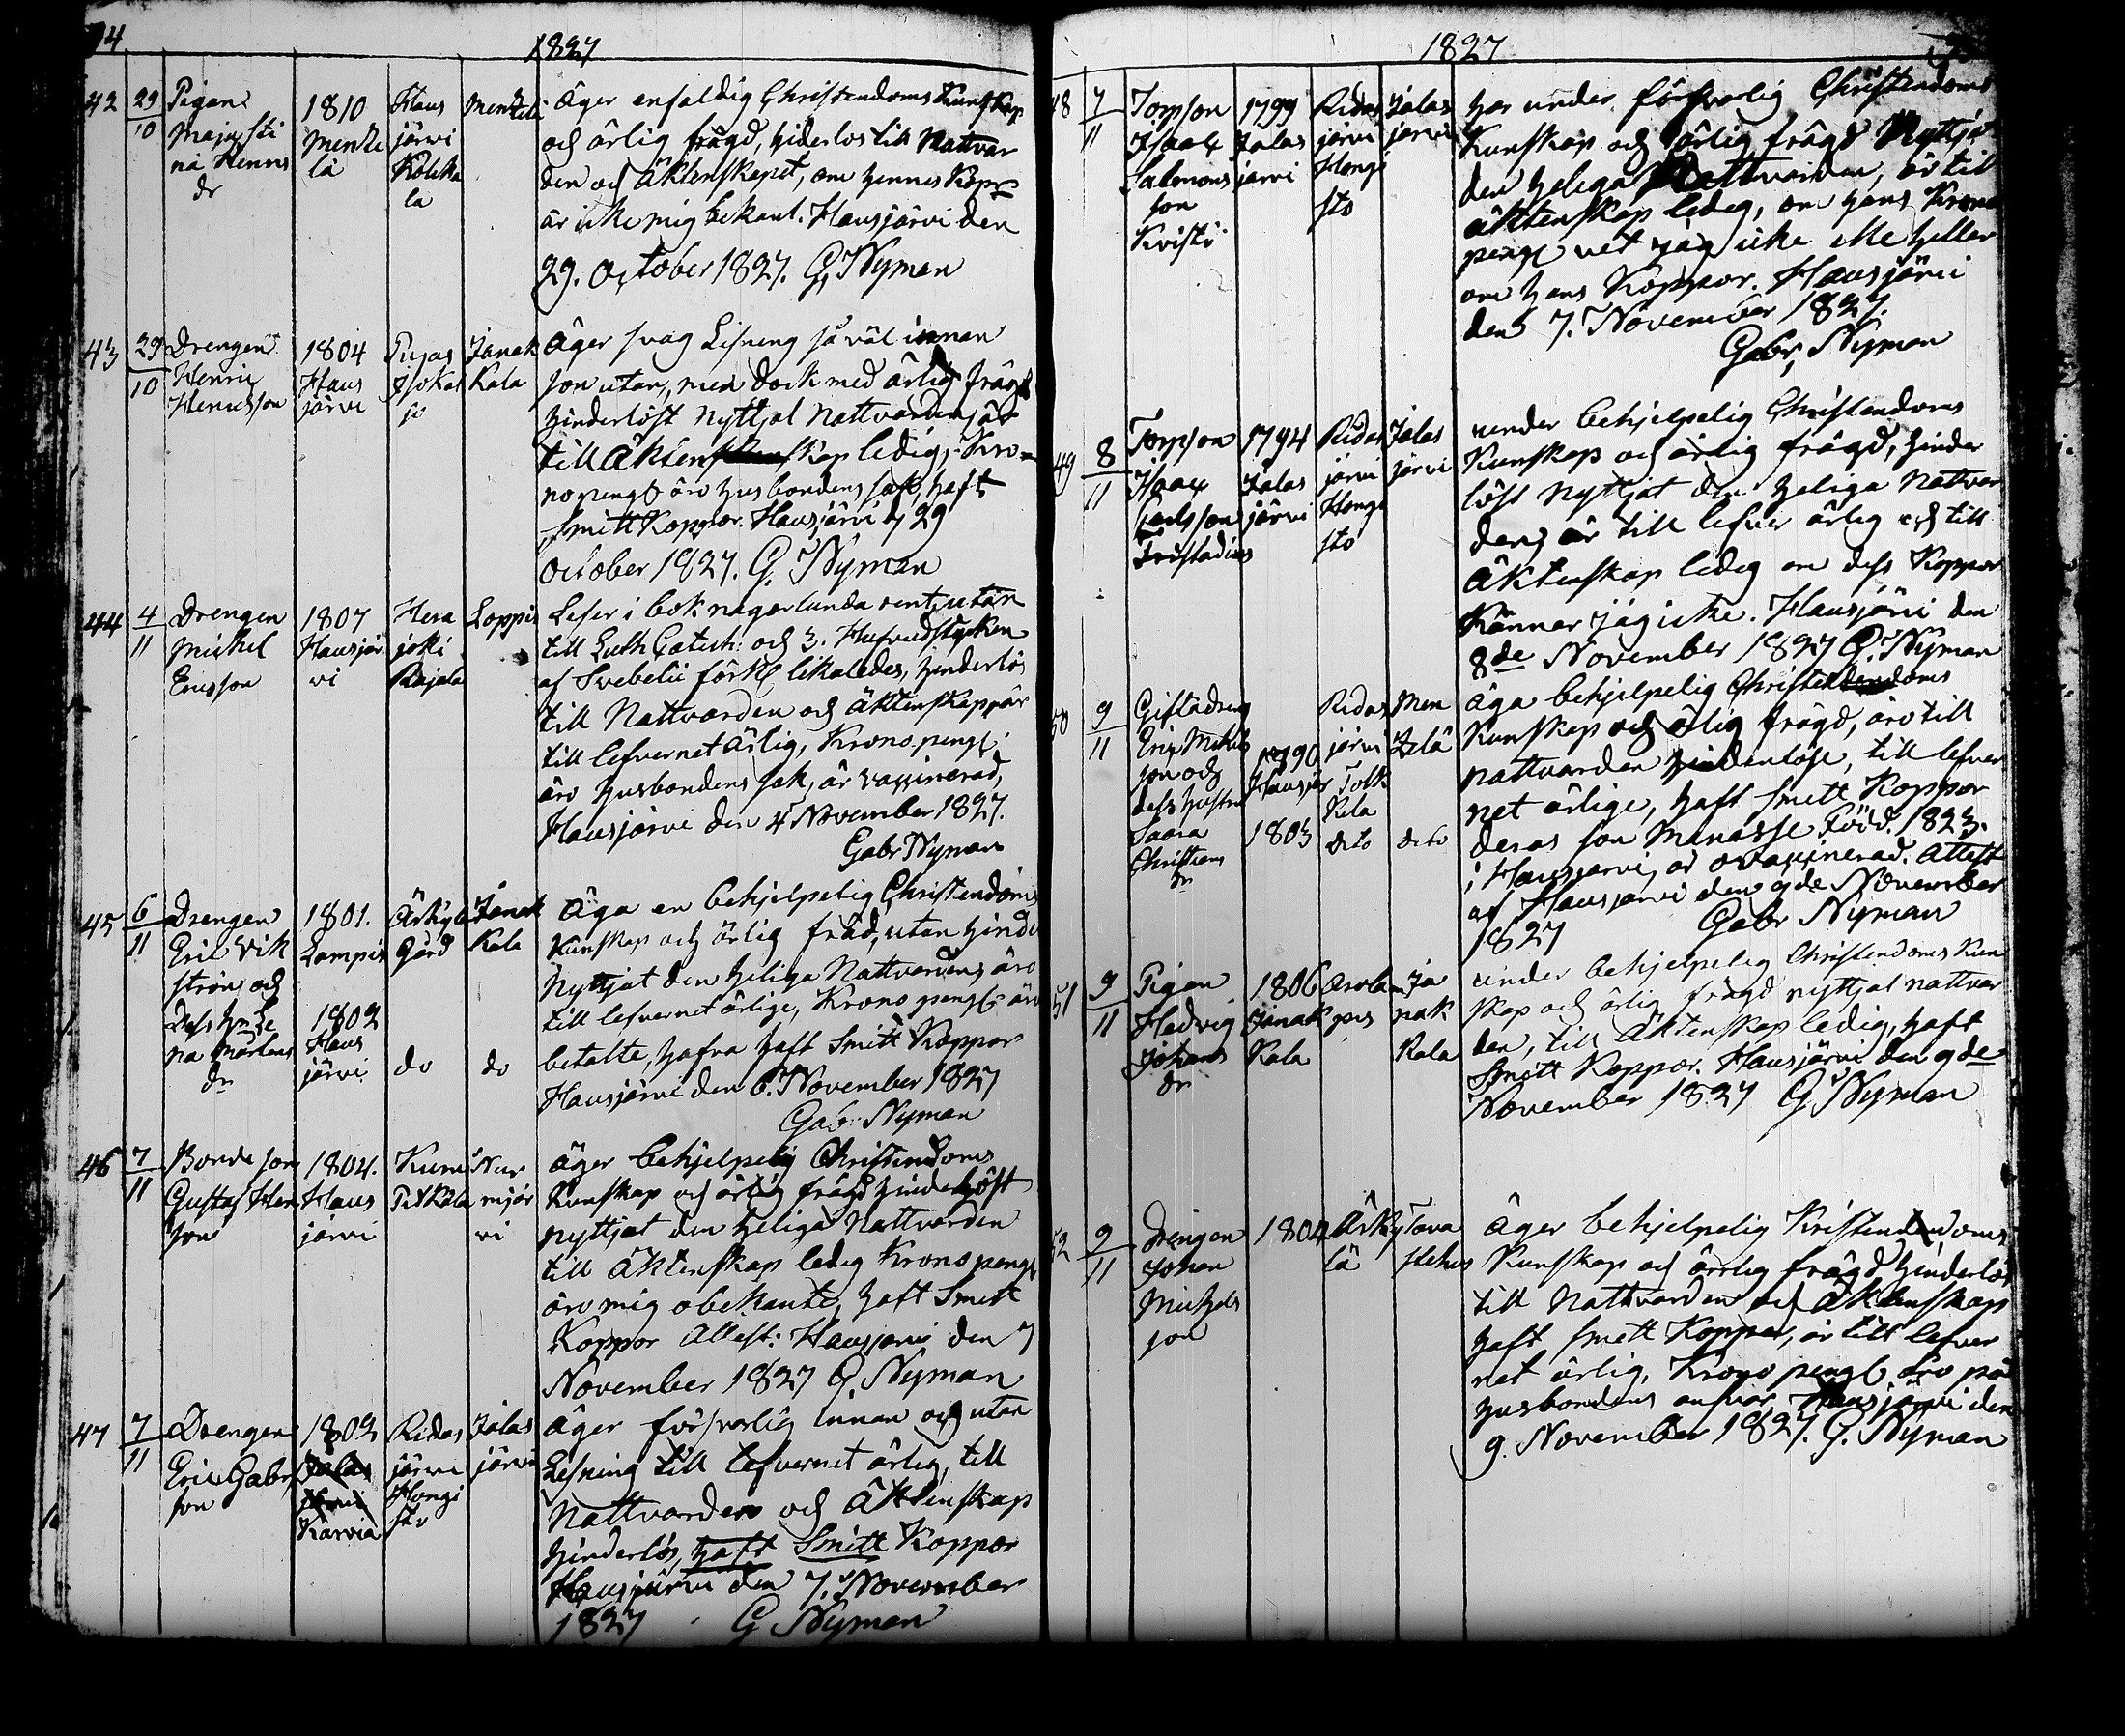 94
1827
42 29/10 Pigan Majasti na Henrs dr 1810 Mentzelä Hausjärvi Kolckala Mentzelä
äger enfaldig Christendoms Kunskap
och ärlig frägd, hinderlös till Nattvar
den och Äktenskapet, om hennes Kopr
är icke mig bekant. Hausjärvi den
29. October 1827. G. Nyman
43 29/10 Drengen Henric Henricsson 1804 Hausjärvi Janakkala
Äger svag Läsning så väl innan
som utan, men dock med ärlig frägd
hinderlöst nyttjat Nattvarden, är
till Äktenskap ledig, Kro
nopengr äro husbondens sak, haft
Smitt Koppor. Hausjärvi d 29
October 1827. G. Nyman
44 4/11 Drengen Mickel Ericsson 1807 Hausjärvi Herajoki Rajala Loppis
Läser i bok någorlunda rent, utan
till Luth. Catech: och 3. Hufvudstycken
af Svebelii förkl likaledes, hinderlös
till Nattvarden och Äktenskap, är
till lefvernet ärlig, Krono pengr
äro husbondens sak, är vaxinerad,
Hausjärvi den 4 November 1827.
Gabr Nyman
45 6/11 Drengen Eric Vikström och 1801. Lampis Gård Janakkala
Dess Mårtens dr 1802 Hausjärvi do do
Äga en behjelpelig Christendoms
Kunskap och ärlig fräd, utan hinder
Nyttjat den heliga Nattvarden, äro
till lefvernet ärlige, Krono pengr äro
betalte, hafva haft Smitt Koppor
Hausjärvi den 6. November 1827
Gab. Nyman
46 7/11 Bonde son Gustaf Hen son 1804. Hausjärvi Nurmijärvi
äger behjelpelig Christendoms
Kunskap och ärlig frägd hinderlöst
nyttjat den heliga Nattvarden
till Äktenskap ledig Krono pengr
äro mig obekante, haft Smitt
Koppor Attest: Hausjärvi den 7
November 1827 G. Nyman
47 7/11 Drengen Eric Gabr. son 1802 Jalasjärvi Karvia Ridasjärvi Hongisto Jalasjärvi
äger försvarlig innan och utan
Läsning till lefvernet ärlig, till
Nattvarden och Äktenskap
hinderlös, haft Smitt Koppor
Hausjärvi den 7. November
1827 G Nyman
1827
48 7/11 Torpson Isaac Salomons son Kristi 1799 Jalasjärvi Ridasjärvi Hongisto Jalasjärvi
har under försvarlig Christendoms
Kunskap och ärlig frägd Nyttja
den heliga Nattvarden, är till
äktenskap ledig, om hans Krono
pengr vet jag icke eller heller
om hans Koppor. Hausjärvi
den 7. November 1827.
Gabr, Nyman
49 8/11 Torpson Isaac 1794 Jalasjärvi Ridasjärvi Hongisto Jalasjärvi
under behjelpelig Christendoms
Kunskap och ärlig frägd, hinder
löst nyttjat den heliga Nattvar
den, är till lefver ärlig och till
Äktenskap ledig om dess Koppor
Känner jag icke. Hausjärvi den
8de November 1827 G. Nyman
50 9/11 Giftadreng Eric Mickels son och dess hustru Saara Christiens dr 1790 Hausjär 1803 Ridasjärvi Tolkkila dito Mentzelä dito
äga behjelpelig Christendoms
Kunskap och ärlig frägd, äro till
nattvarden hinderlöse, till lefver
net ärlige, haft Smitt Koppor
deras son Manasse Född. 1823.
i Hausjärvi, är ovaxinerad. Attest
af Hausjärvi den 9de November
1827 Gabr Nyman
51 9/11 Pigan Hedvig Johans dr 1806 Janakkala Janakkala
under behjelpelig Christendoms Kun
skap och ärlig frägd nyttjat nattvar
den, till Äktenskap ledig, haft
Smitt Koppor. Hausjärvi den 9de
November 1827 G Nyman
52 9/11 Drengen Johan Michels son 1804 Årkylä Tavastehus
äger behjelpelig Kristendoms
Kunskap och ärlig frägd hinderlös
till Nattvarden och Äktenskap
haft smitt Koppor, är till lefver
net ärlig, Krono pengr äro på
husbondens ansvar Hausjärvi den
9. November 1827. G. Nyman